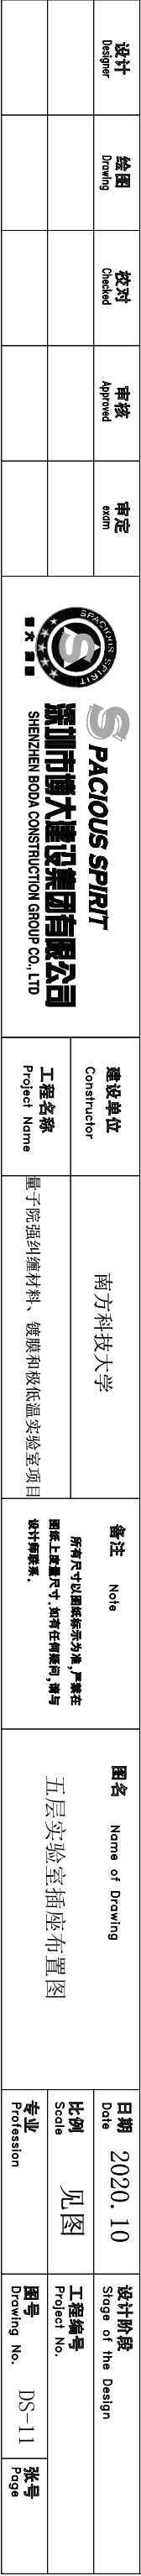 设计
Designer
绘图
Drawing
校对
Checked
审核
Approved
审定
exam
SPACIOUS SPIRIT
S
博大集团
SPACIOUS SPIRIT
深圳市博大建设集团有限公司
SHENZHEN BODA CONSTRUCTION GROUP CO., LTD
建设单位
Constructor
南方科技大学
工程名称
Project Name
量子院强纠缠材料、镀膜和极低温实验室项目
备注 Note
所有尺寸以图纸标示为准,严禁在
图纸上度量尺寸.如有任何疑问,请与
设计师联系.
图名 Name of Drawing
五层实验室插座布置图
日期
Date
2020.10
设计阶段
Stage of the Design
比例
Scale
见图
工程编号
Project No.
专业
Profession
图号
Drawing No.
DS-11
张号
Page